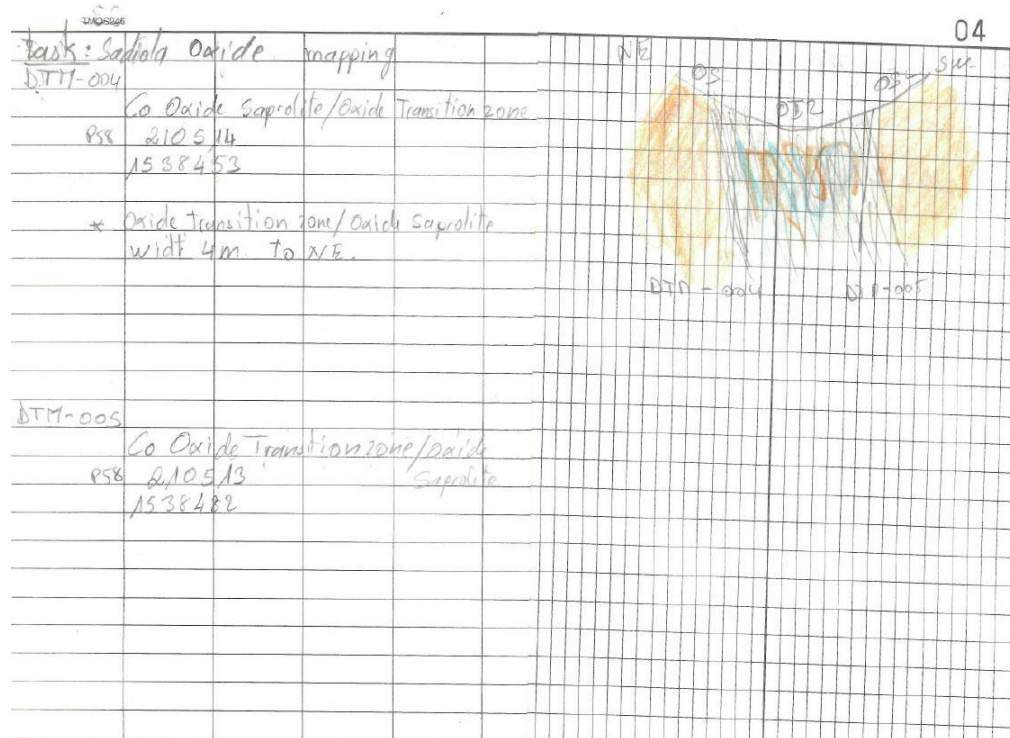 04
Task: Sadiola Oxide mapping
DTM-004
Co Oxide Saprolite/Oxide Transition zone
P58 210514
1538453
* Oxide transition zone/Oxide saprolite
widt 4m to NE.
DTM-005
Co Oxide Transition zone/Oxide
Saprolite
P58 210513
1538482
NE
SW
OS
OS
DTM-004
DTM-005